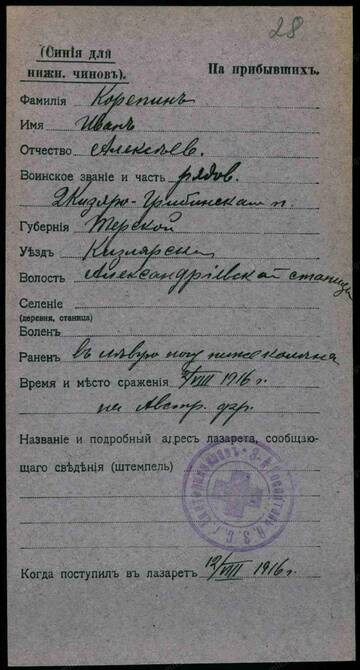 28
(Синія для
нижн. чиновъ).
На прибывшихъ.
Фамилія Корепинъ
Имя Иванъ
Отчество Алексѣев.
Воинское званіе и часть рядов.
2 Кизляро-Гребинскаго п.
Губернія Терской
Уѣздъ Кизлярскій
Волость Александрійской станицы
Селеніе
(деревня, станица)
Боленъ
Раненъ въ лѣвую ногу ниже колѣна
Время и мѣсто сраженія /VIII 1916 г.
на Австр. фр.
Названіе и подробный адресъ лазарета, сообщаю-
щаго свѣдѣнія (штемпель)
Когда поступилъ въ лазаретъ 12/VIII 1916 г.